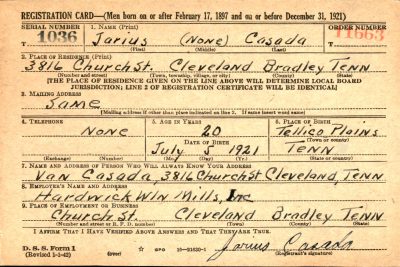 REGISTRATION CARD—(Men born on or after February 17, 1897 and on or before December 31, 1921)
SERIAL NUMBER 1. NAME (Print) ORDER NUMBER
1036 Jarius (None) Casada 11663
(First) (Middle) (Last)
2. PLACE OF RESIDENCE (Print)
3816 Church St. Cleveland Bradley Tenn
(Number and street) (Town, township, village, or city) (County) (State)
[THE PLACE OF RESIDENCE GIVEN ON THE LINE ABOVE WILL DETERMINE LOCAL BOARD
JURISDICTION; LINE 2 OF REGISTRATION CERTIFICATE WILL BE IDENTICAL]
3. MAILING ADDRESS
Same
[Mailing address if other than place indicated on line 2. If same insert word same]
4. TELEPHONE 5. AGE IN YEARS 6. PLACE OF BIRTH
None 20 Tellico Plains
DATE OF BIRTH (Town or county)
July 5 1921 Tenn
(Exchange) (Number) (Mo.) (Day) (Yr.) (State or country)
7. NAME AND ADDRESS OF PERSON WHO WILL ALWAYS KNOW YOUR ADDRESS
Van Casada, 3816 Church St Cleveland, Tenn
8. EMPLOYER'S NAME AND ADDRESS
Hardwick Wln Mills, Inc
9. PLACE OF EMPLOYMENT OR BUSINESS
Church St. Cleveland Bradley Tenn
(Number and street or R. F. D. number) (Town) (County) (State)
I AFFIRM THAT I HAVE VERIFIED ABOVE ANSWERS AND THAT THEY ARE TRUE.
D. S. S. Form 1 GPO 16—21630-1 Jarius Casada
(Revised 1-1-42) (over) (Registrant's signature)